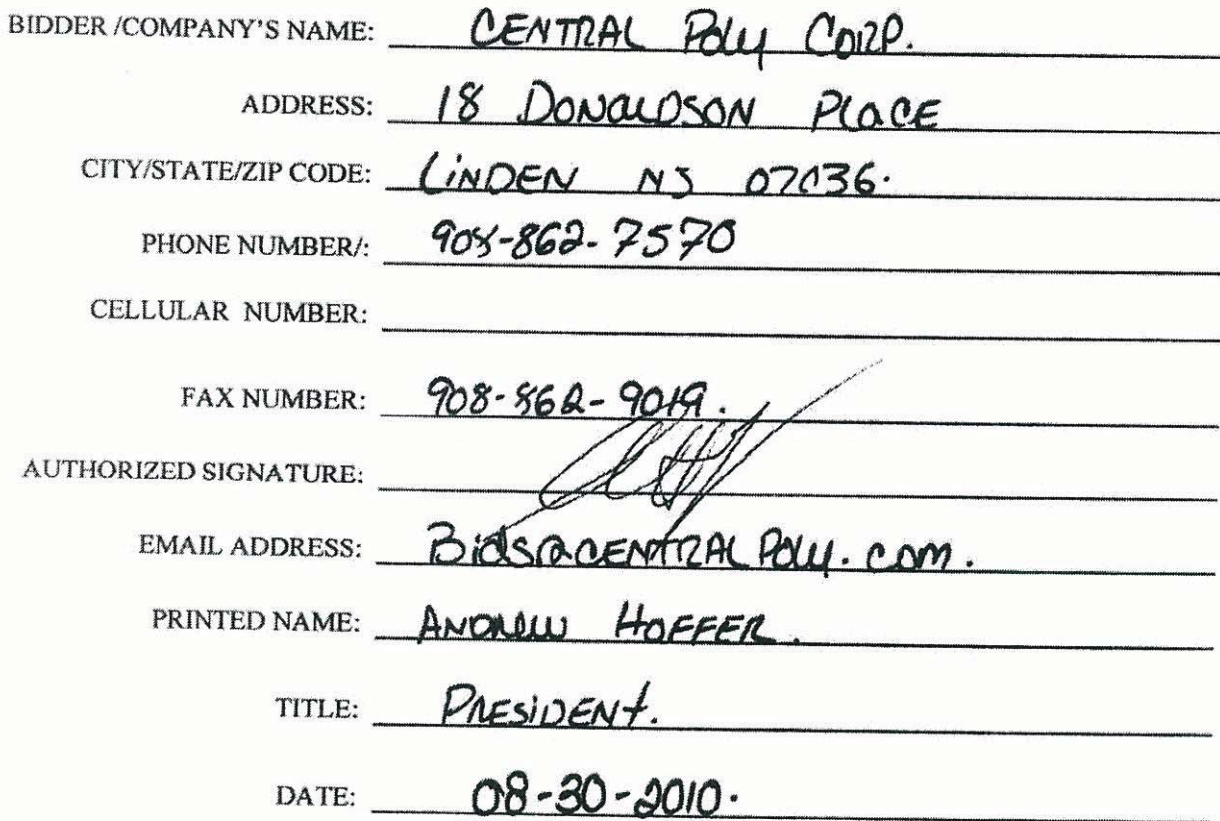 BIDDER /COMPANY'S NAME: CENTRAL Poly CORP.
ADDRESS: 18 DONALDSON PLACE
CITY/STATE/ZIP CODE: LINDEN NJ 07036.
PHONE NUMBER/: 908-862-7570
CELLULAR NUMBER:
FAX NUMBER: 908-862-9019.
AUTHORIZED SIGNATURE:
EMAIL ADDRESS: Bids@CENTRALPoly.com.
PRINTED NAME: ANDREW HOFFER.
TITLE: PRESIDENT.
DATE: 08-30-2010.